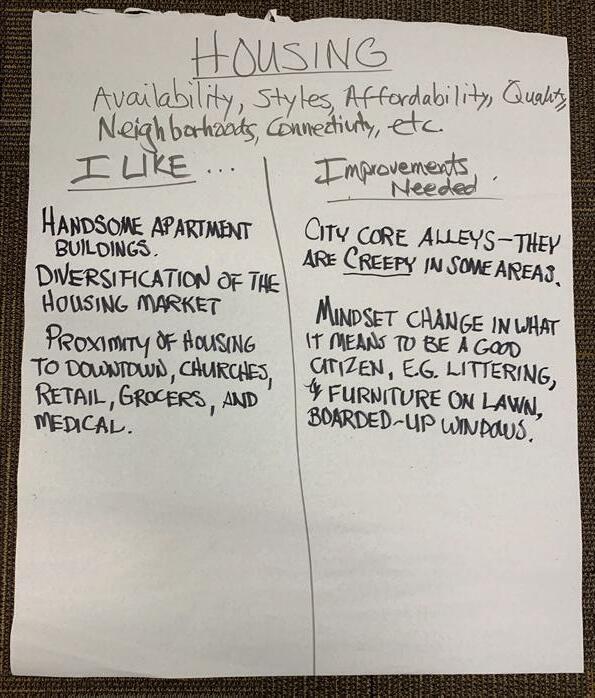 HOUSING
Availability, Styles, Affordability, Quality,
Neighborhoods, Connectivity, etc.
I LIKE ...
HANDSOME APARTMENT
BUILDINGS.
DIVERSIFICATION OF THE
HOUSING MARKET
PROXIMITY OF HOUSING
TO DOWNTOWN, CHURCHES,
RETAIL, GROCERS, AND
MEDICAL.
Improvements
Needed.
CITY CORE ALLEYS - THEY
ARE CREEPY IN SOME AREAS.
MINDSET CHANGE IN WHAT
IT MEANS TO BE A GOOD
CITIZEN, E.G. LITTERING,
& FURNITURE ON LAWN,
BOARDED-UP WINDOWS.